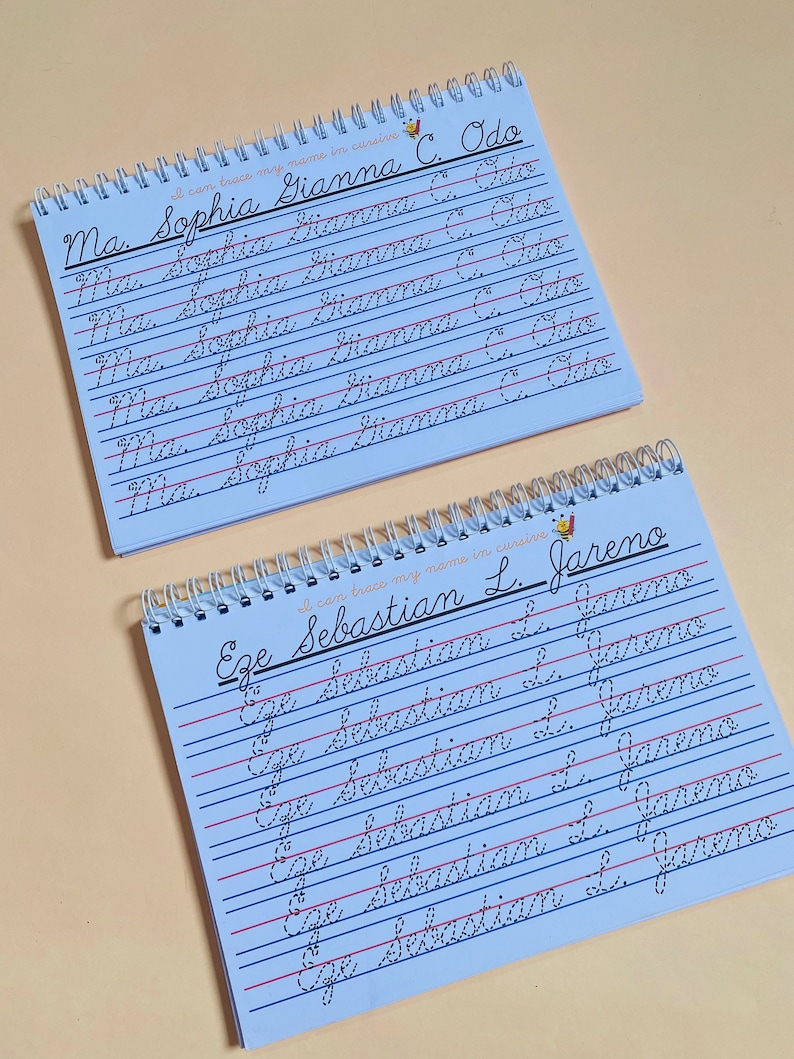 I can trace my name in cursive
Ma. Sophia Gianna C. Odo
Ma. Sophia Gianna C. Odo
Ma. Sophia Gianna C. Odo
Ma. Sophia Gianna C. Odo
Ma. Sophia Gianna C. Odo
Ma. Sophia Gianna C. Odo
Ma. Sophia Gianna C. Odo
I can trace my name in cursive
Eze Sebastian L. Jareno
Eze Sebastian L. Jareno
Eze Sebastian L. Jareno
Eze Sebastian L. Jareno
Eze Sebastian L. Jareno
Eze Sebastian L. Jareno
Eze Sebastian L. Jareno